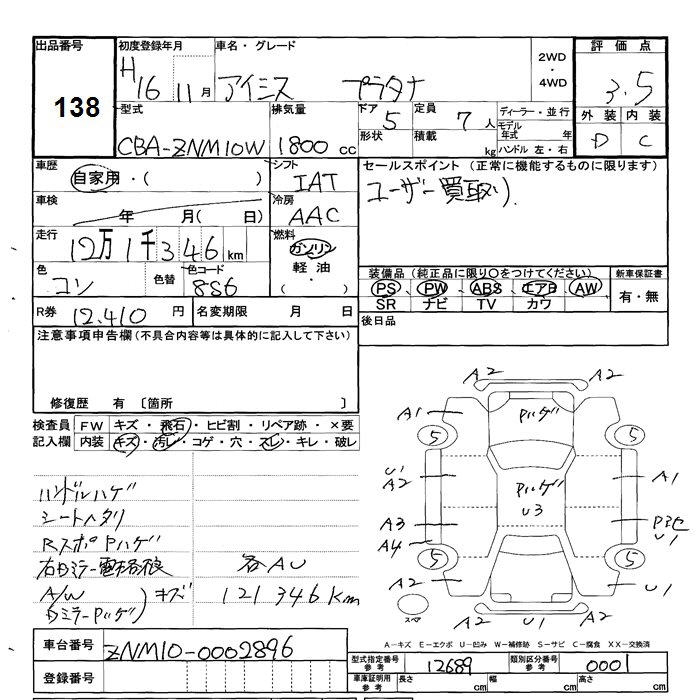 出品番号 138
初度登録年月 H16 11月
車名・グレード アイシス プラタナ
2WD・4WD
評価点 3.5
外装 D 内装 C
型式 CBA-ZNM10W
排気量 1800cc
ドア 5
形状
定員 7人
積載 kg
ディーラー・並行
モデル年式 年
ハンドル 左・右
車歴 自家用・( )
シフト IAT
車検 年 月( 日)
冷房 AAC
走行 12万1千346km
燃料 ガソリン・軽油・( )
色 コン
色替
色コード 8S6
R券 12,410円
名変期限 月 日
セールスポイント (正常に機能するものに限ります)
ユーザー買取り.
装備品 (純正品に限り○をつけてください)
PS、PW、ABS、エアB、AW
SR ナビ TV カワ
新車保証書 有・無
後日品
注意事項申告欄(不具合内容等は具体的に記入して下さい)
修復歴 有 〔箇所 〕
検査員記入欄
FW キズ・飛石・ヒビ割・リペア跡・×要
内装 キズ・汚レ・コゲ・穴・スレ・キレ・破レ
ハンドルハゲ
シートヘタリ
RスポPハゲ
各AU
A/W
キズ
121346km
DミラーPハゲ
A2 A2
A1 Pハゲ
5 5
U1
A2 Pハゲ A1
U3
A3
A4 U1
5 5
A2 U1
スペア A2 U1 A2
A-キズ E-エクボ U-凹み W-補修跡 S-サビ C-腐食 XX-交換済
車台番号 ZNM10-0002896
登録番号
型式指定番号 参考 12689
類別区分番号 参考 0001
車庫証明用 参考 長さ cm 幅 cm 高さ cm